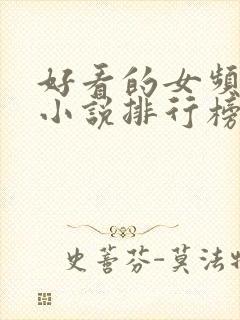 好看的女频
小说排行榜
史蒈芬-莫法特